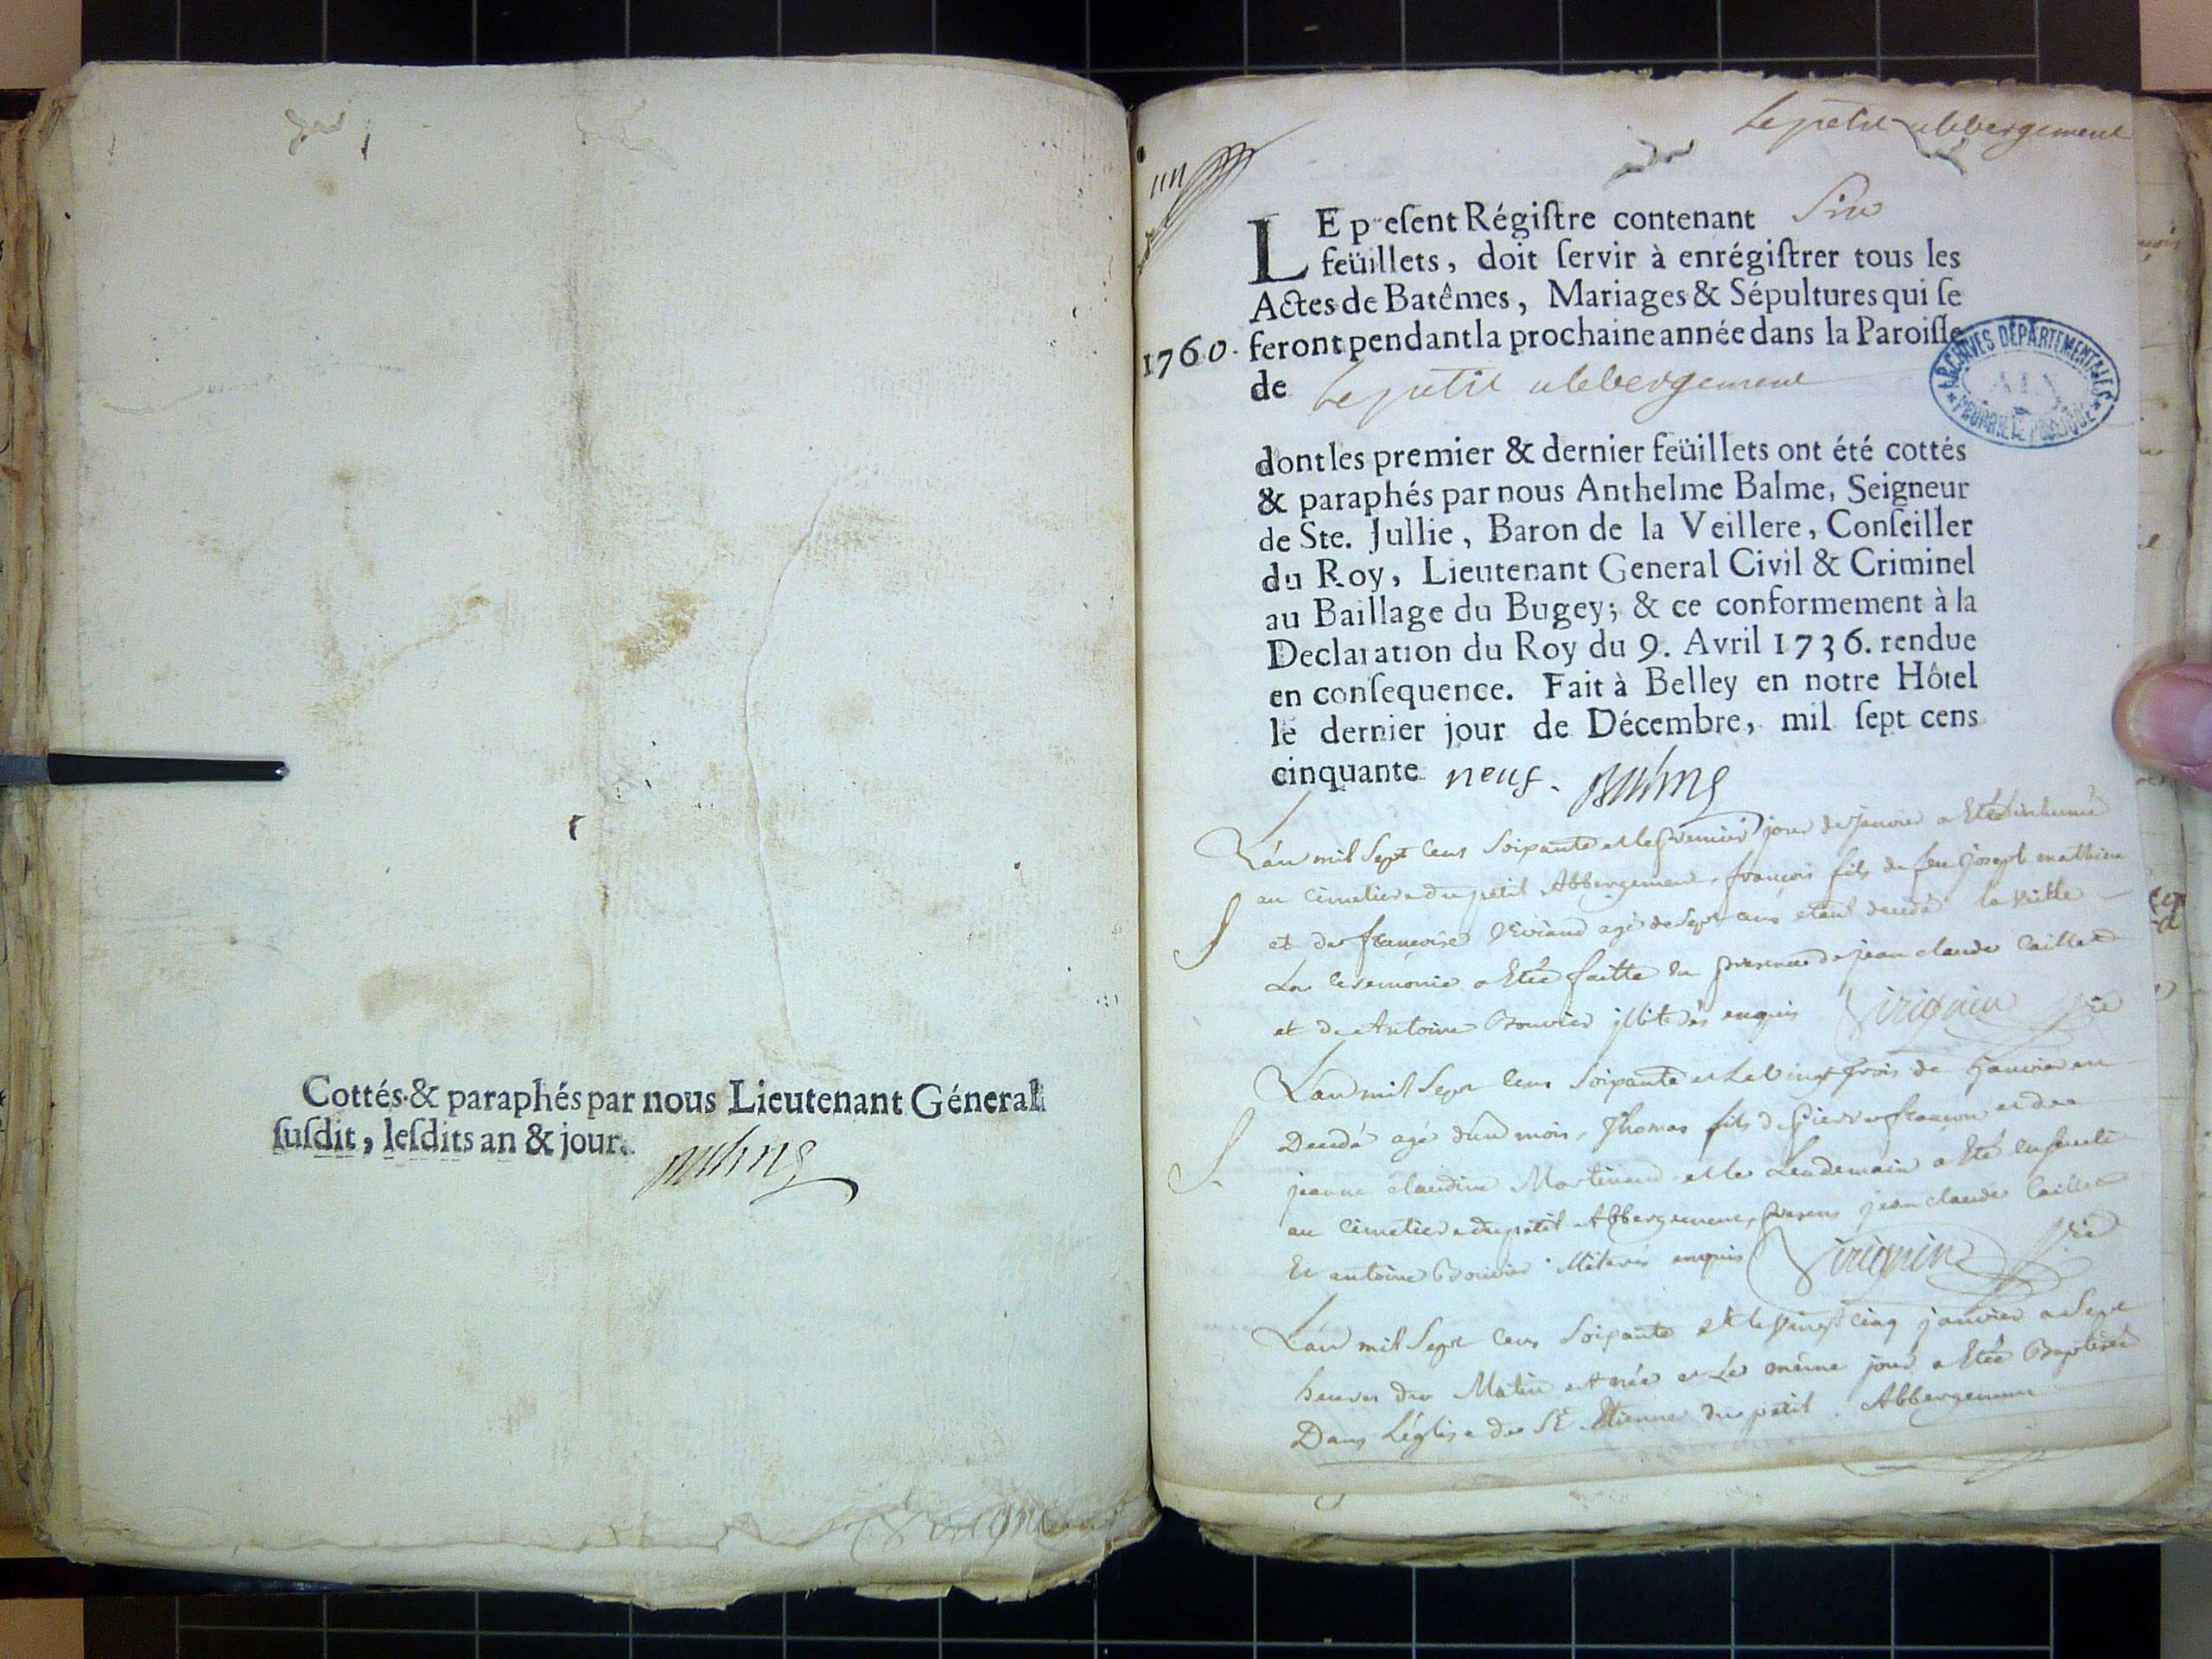 Cottés & paraphés par nous Lieutenant Géneral
ſuſdit, leſdits an & jour.
Le petit abbergement
un
LE preſent Régiſtre contenant Six
feüillets, doit ſervir à enrégiſtrer tous les
Actes de Batêmes, Mariages & Sépultures qui ſe
1760. feront pendant la prochaine année dans la Paroiſſe
de Le petit abbergement
ARCHIVES DÉPARTEMENTALES
AIN
PROPRIÉTÉ PUBLIQUE
dont les premier & dernier feüillets ont été cottés
& paraphés par nous Anthelme Balme, Seigneur
de Ste. Jullie, Baron de la Veillere, Conſeiller
du Roy, Lieutenant General Civil & Criminel
au Baillage du Bugey; & ce conformement à la
Declaration du Roy du 9. Avril 1736. rendue
en conſequence. Fait à Belley en notre Hôtel
le dernier jour de Décembre, mil ſept cens
cinquante neuf. Balme
L'an mil Sept Cens Soixante et le premier jour de Janvier a Eté inhumé
au Cimetiere du petit Abbergement, françois fils de feu Joseph mathieu
S et de françoise agé de Sept ans etant decedé la veille
La Ceremonie a Eté faitte en presence de jean claude Caillet
et de Antoine Bouvier illiterés enquis Sirignin
L'an mil Sept Cens Soixante et le vingt trois de Janvier est
S Decedé agé d'un mois, Thomas fils de Pierre françon et de
jeanne claudine Martinand et le Lendemain a Eté enseveli
au Cimetiere du petit Abbergement, presens jean claude Caillet
Et antoine Bouvier illiterés enquis Sirignin
L'an mil Sept Cens Soixante et le vingt cinq janvier a Sept
heures du Matin est née et Le même jour a Eté Baptisée
Dans L'église de St Etienne du petit Abbergement